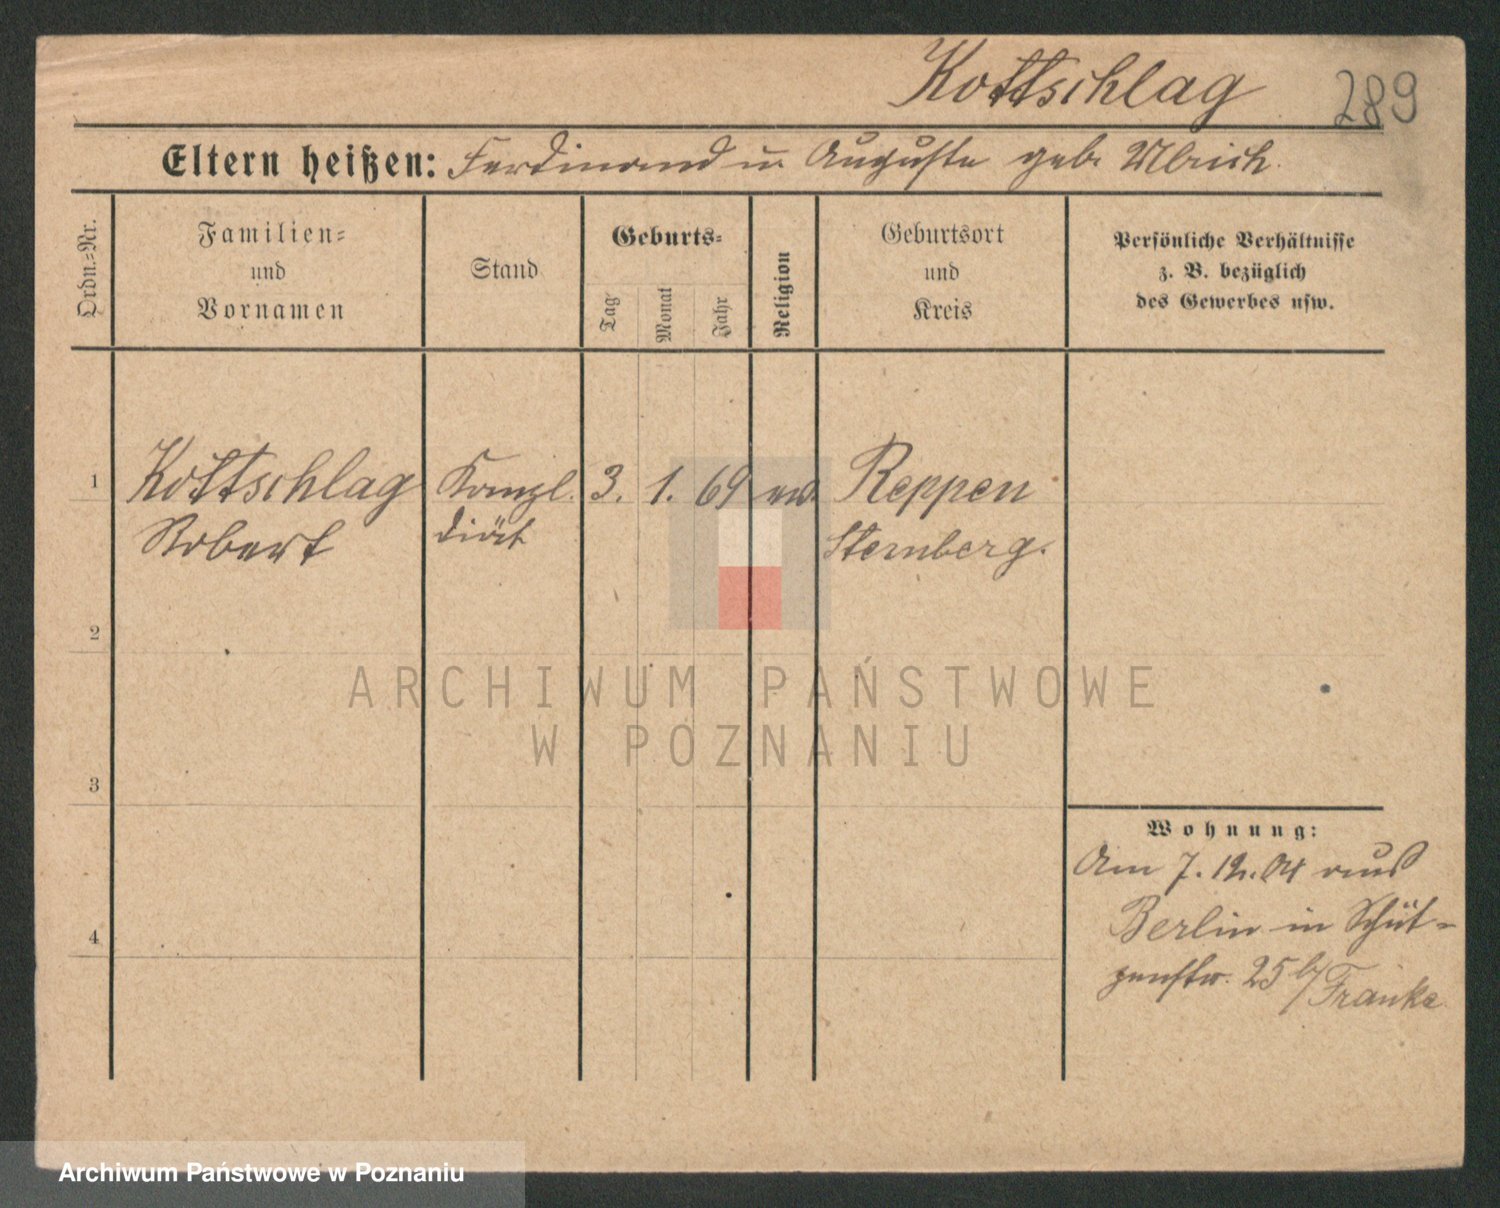 Kottschlag 289
Eltern heißen: Ferdinand u. Auguste geb. Ulrich.
Ordn.=Nr. Familien= und Vornamen Stand Geburts= Tag Monat Jahr Religion Geburtsort und Kreis Persönliche Verhältnisse z. B. bezüglich des Gewerbes usw.
1 Kottschlag Kanzl. 3. 1. 69 ev. Reppen
Robert diät Sternberg.
2
ARCHIWUM PAŃSTWOWE
W POZNANIU
3
Wohnung:
Am 7. 12. 04 aus
4 Berlin in Schüt-
zenstr. 25 b/ Franke
Archiwum Państwowe w Poznaniu